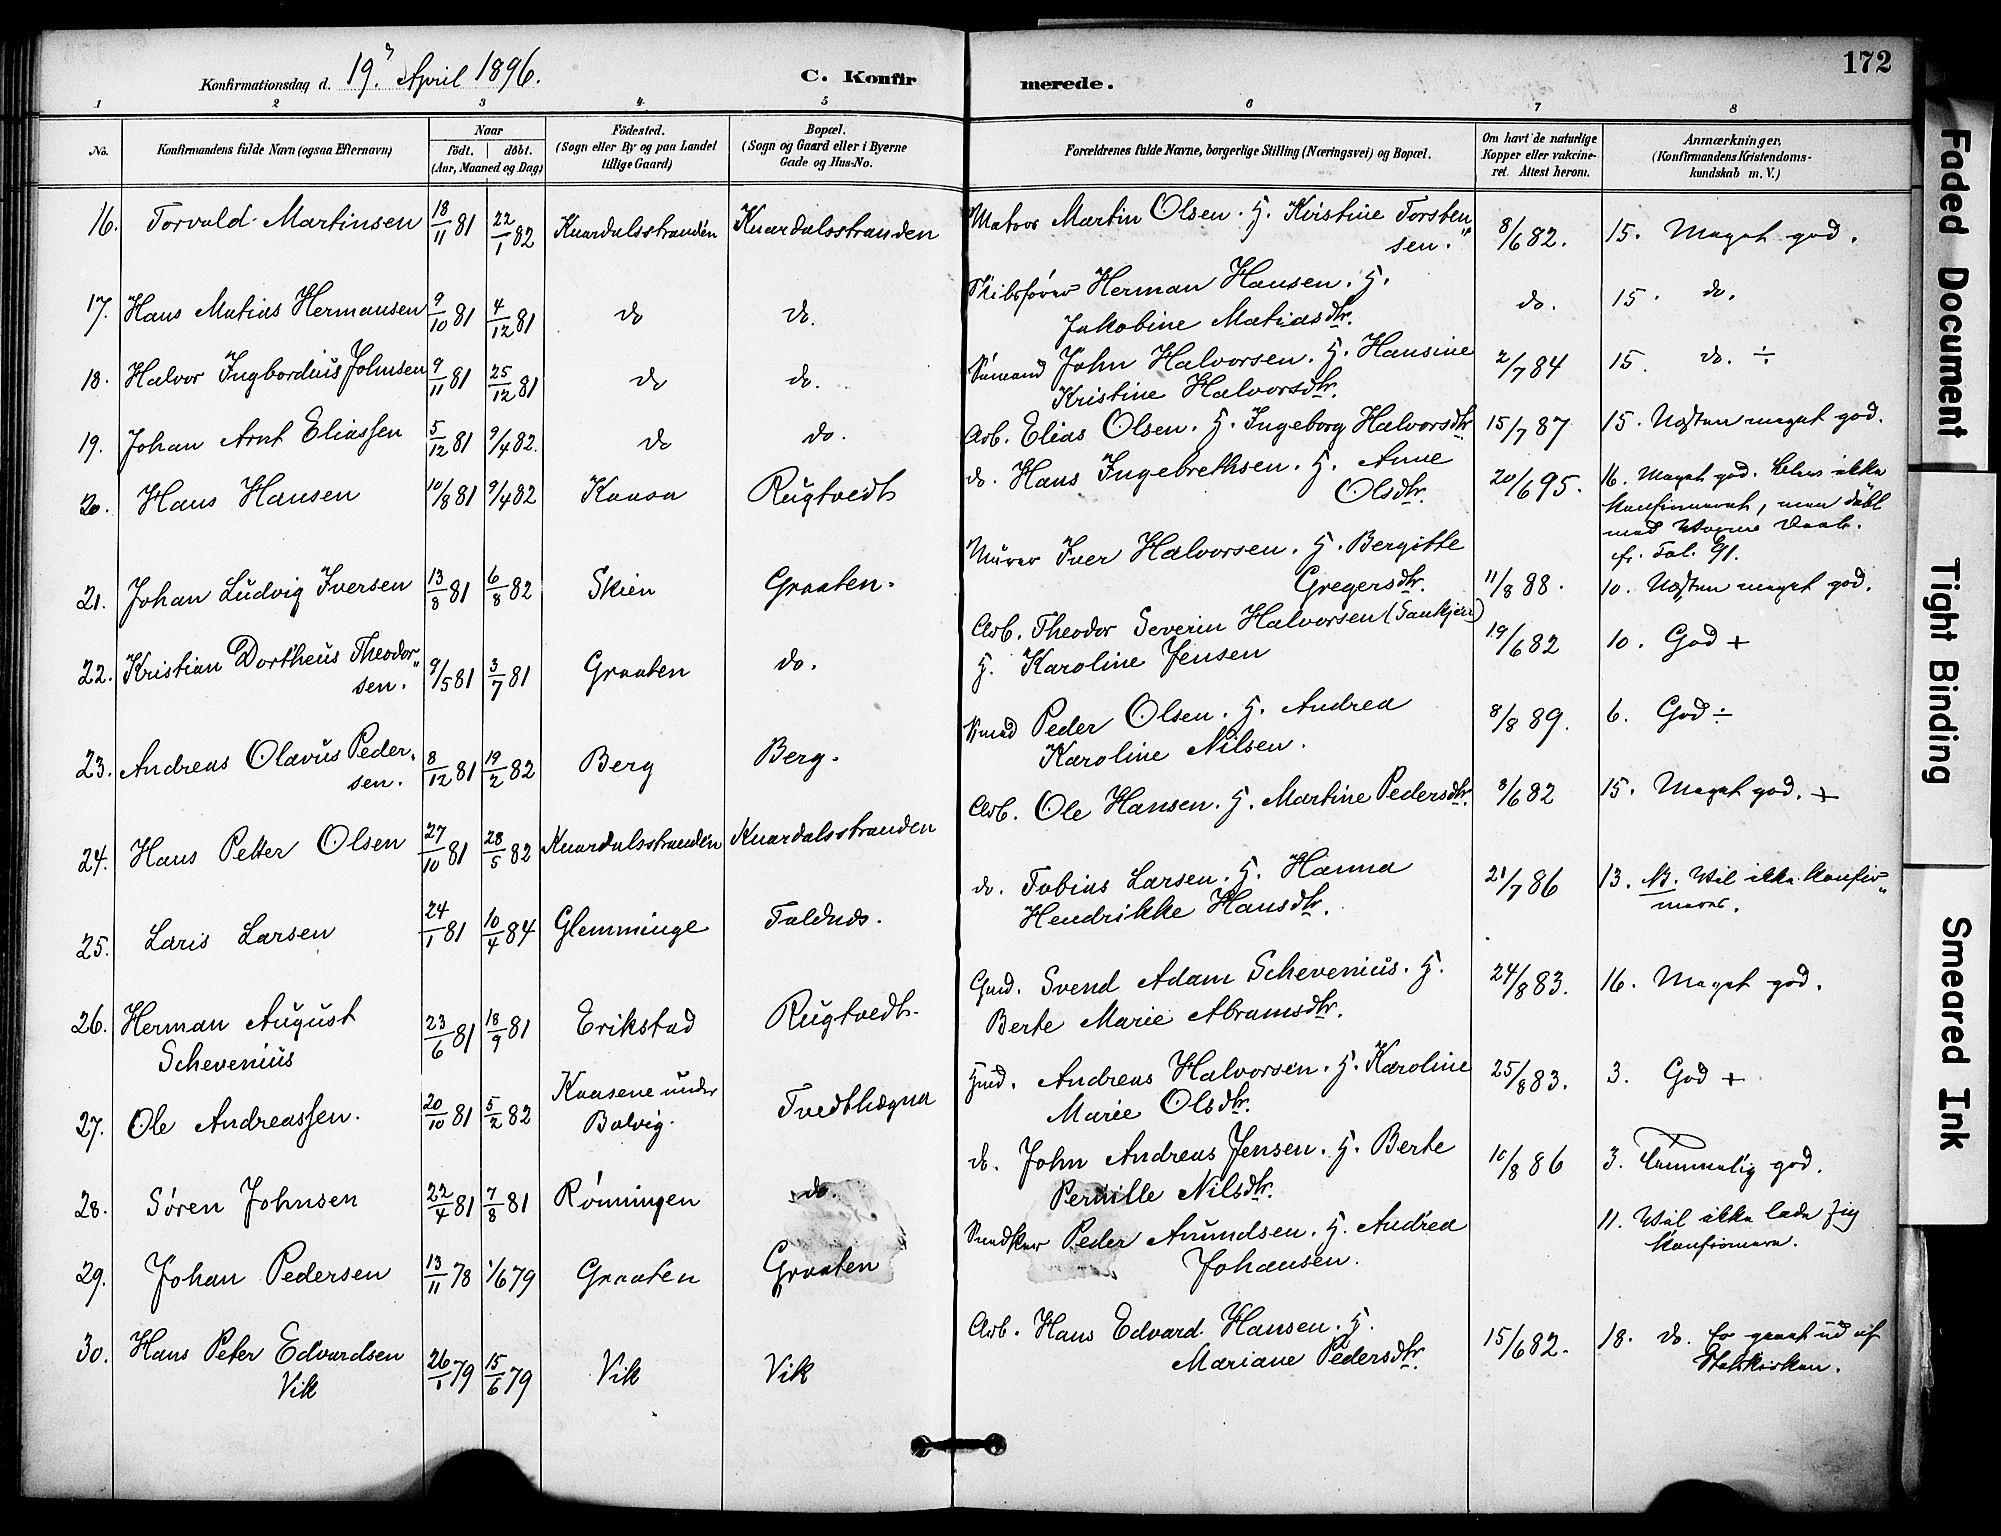 172
Konfirmationsdag d. 19. April 1896. C. Konfirmerede.
1 2 3 4 5 6 7 8
No. Konfirmandens fulde Navn (ogsaa Efternavn) Naar født. døbt. (Aar, Maaned og Dag) Fødested. (Sogn eller By og paa Landet tillige Gaard) Bopæl. (Sogn og Gaard eller i Byerne Gade og Hus-No. Forældrenes fulde Navne, borgerlige Stilling (Næringsvei) og Bopæl. Om havt de naturlige Kopper eller vakcineret. Attest herom. Anmærkninger. (Konfirmandens Kristendomskundskab m. V.)
16. Torvald Martinsen 18/11 81 22/1 82 Knardalsstranden Knardalsstranden Matros Martin Olsen. H. Kristine Torstensen. 8/6 82. 15. Meget god.
17. Hans Matias Hermansen 9/10 81 4/12 81 do do. Skibsfører Herman Hansen. H. Jakobine Matiasdtr. do. 15. do.
18. Halvor Ingbordius Johnsen 9/11 81 25/12 81 do do. Sømand John Halvorsen. H. Hansine Kristine Halvorsdtr. 2/7 84 15. do. ÷
19. Johan Arnt Eliassen 5/12 81 9/4 82. do do. Arb. Elias Olsen. H. Ingeborg Halvorsdtr 15/7 87 15. Næsten meget god.
20. Hans Hansen 10/8 81 9/4 82 Kaasa Rugtvedt do. Hans Ingebrethsen. H. Anne Olsdtr. 20/6 95. 16. Meget god. Blev ikke konfirmeret, men døbt
21. Johan Ludvig Iversen 13/8 81 6/8 82 Skien Graaten. Murer Iver Halvorsen. H. Bergitte Gregersdtr. 11/8 88. 10. Næsten meget god.
22. Kristian Dortheus Theodorsen. 9/5 81 3/7 81 Graaten do. Arb. Theodor Severin Halvorsen H. Karoline Jensen 19/6 82 10. God +
23. Andreas Olavus Pedersen. 8/12 81 19/2 82 Berg Berg. Smed Peder Olsen. H. Andrea Karoline Nilsen. 8/8 89. 6. God ÷
24. Hans Petter Olsen 27/10 81 28/5 82 Knardalsstranden Knardalsstranden Arb. Ole Hansen. H. Martine Pedersdtr. 8/6 82 15. Meget god. +
25. Laris Larsen 24/1 81 10/4 84 Glemminge Foldnes. do. Tobias Larsen. H. Hanna Hendrikke Hansdtr. 21/7 86 13. N. Vil ikke konfirmeres.
26. Herman August Schevenius 23/6 81 18/9 81 Erikstad Rugtvedt. Gmd. Svend Adam Schevenius. H. Berte Marie Abramsdtr. 24/8 83. 16. Meget god.
27. Ole Andreassen. 20/10 81 5/2 82 Kaasene under Bolvig. Tvedthægna Hmd. Andreas Halvorsen. H. Karoline Marie Olsdtr. 25/8 83. 3. God +
28. Søren Johnsen 22/4 81 7/8 81 Rønningen do. do. John Andreas Jensen. H. Berte Pernille Nilsdtr. 10/8 86 3. Temmelig god.
29. Johan Pedersen 13/11 78 1/6 79 Graaten Graaten Snedker Peder Amundsen. H. Andrea Johansen. 11. Vil ikke lade sig konfirmere.
30. Hans Peter Edvardsen Vik 26/1 79 15/6 79 Vik Vik Arb. Hans Edvard Hansen. H. Mariane Pedersdtr. 15/6 82. 18. do. Er gaaet ud af Statskirken.
Faded Document
Tight Binding
Smeared Ink